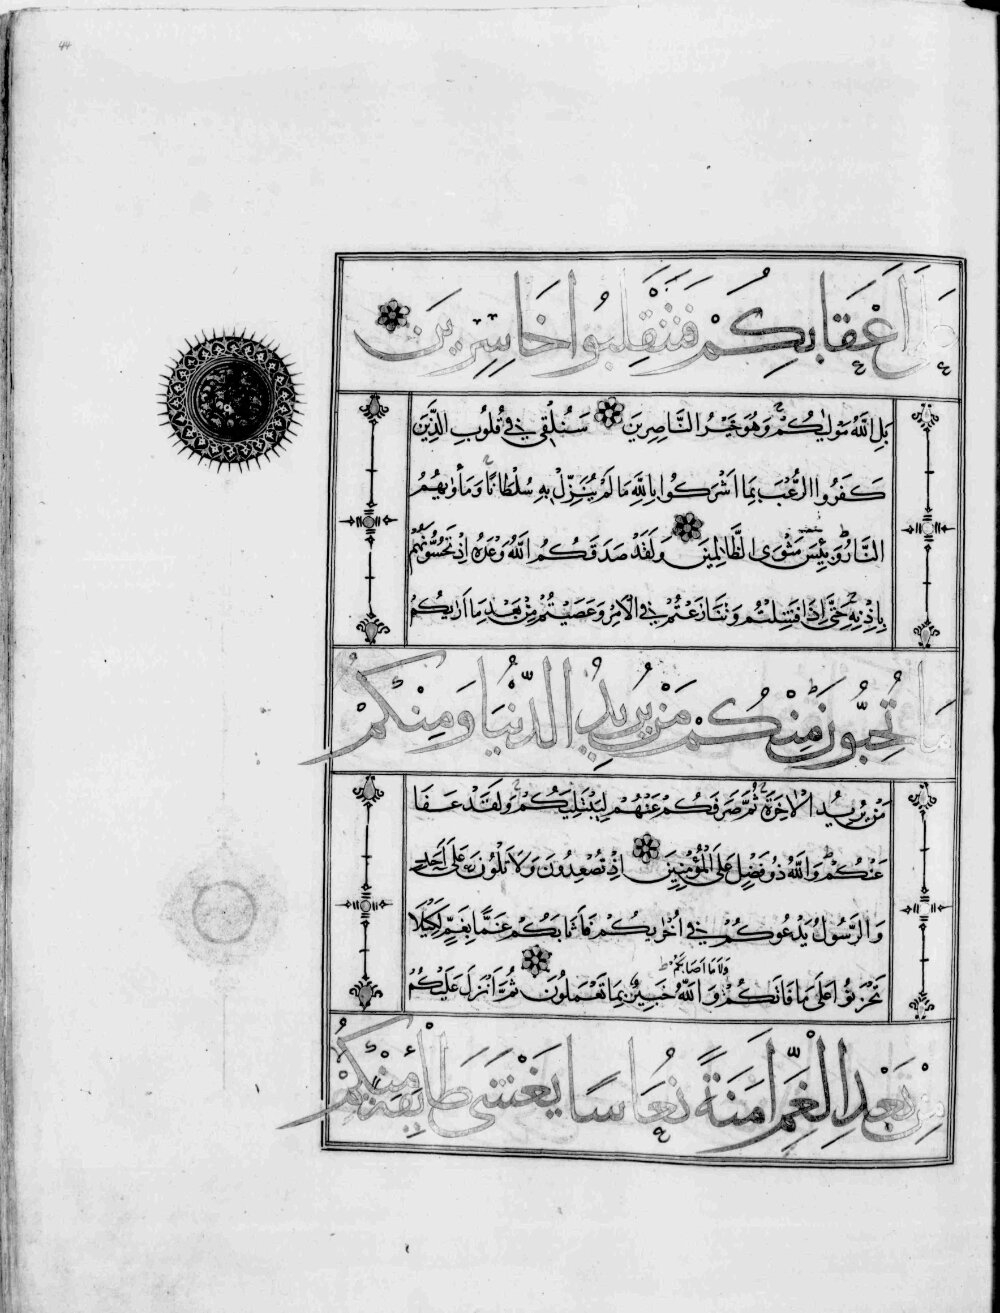 44
عَلَى اَعْقَابِكُمْ فَتَنْقَلِبُوا خَاسِرِينَ
بَلِ اللّٰهُ مَوْلٰيكُمْ وَهُوَ خَيْرُ النَّاصِرِينَ سَنُلْقِي فِي قُلُوبِ الَّذِينَ
كَفَرُوا الرُّعْبَ بِمَا اَشْرَكُوا بِاللّٰهِ مَا لَمْ يُنَزِّلْ بِهِ سُلْطَانًا وَمَأْوٰيهُمُ
النَّارُ وَبِئْسَ مَثْوَى الظَّالِمِينَ وَلَقَدْ صَدَقَكُمُ اللّٰهُ وَعْدَهُ اِذْ تَحُسُّونَهُمْ
بِاِذْنِهِ حَتّٰى اِذَا فَشِلْتُمْ وَتَنَازَعْتُمْ فِي الْاَمْرِ وَعَصَيْتُمْ مِنْ بَعْدِ مَا اَرٰيكُمْ
مَا تُحِبُّونَ مِنْكُمْ مَنْ يُرِيدُ الدُّنْيَا وَمِنْكُمْ
مَنْ يُرِيدُ الْاٰخِرَةَ ثُمَّ صَرَفَكُمْ عَنْهُمْ لِيَبْتَلِيَكُمْ وَلَقَدْ عَفَا
عَنْكُمْ وَاللّٰهُ ذُو فَضْلٍ عَلَى الْمُؤْمِنِينَ اِذْ تُصْعِدُونَ وَلَا تَلْوُنَ عَلٰى اَحَدٍ
وَالرَّسُولُ يَدْعُوكُمْ فِي اُخْرٰيكُمْ فَاَثَابَكُمْ غَمًّا بِغَمٍّ لِكَيْلَا
وَلَا مَا اَصَابَكُمْ ط
تَحْزَنُوا عَلٰى مَا فَاتَكُمْ وَاللّٰهُ خَبِيرٌ بِمَا تَعْمَلُونَ ثُمَّ اَنْزَلَ عَلَيْكُمْ
مِنْ بَعْدِ الْغَمِّ اَمَنَةً نُعَاسًا يَغْشٰى طَائِفَةً مِنْكُمْ